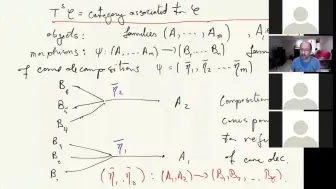 T^s 𝒞 = category associated to 𝒞
objects: families (A_1, ..., A_m), A_i
morphisms: ψ: (A_1 ... A_m) → (B_1 ... B_n) famil
of cone decompositions ψ = (η̄_1, η̄_2 ... η̄_m)
B_6
B_5
B_4
η̄_2
A_2
Composition
B_3
B_2
B_1
η̄_1
A_1
of cone dec.
(η̄_1, η̄_2): (A_1, A_2) → (B_1, B_2, .. B_6).